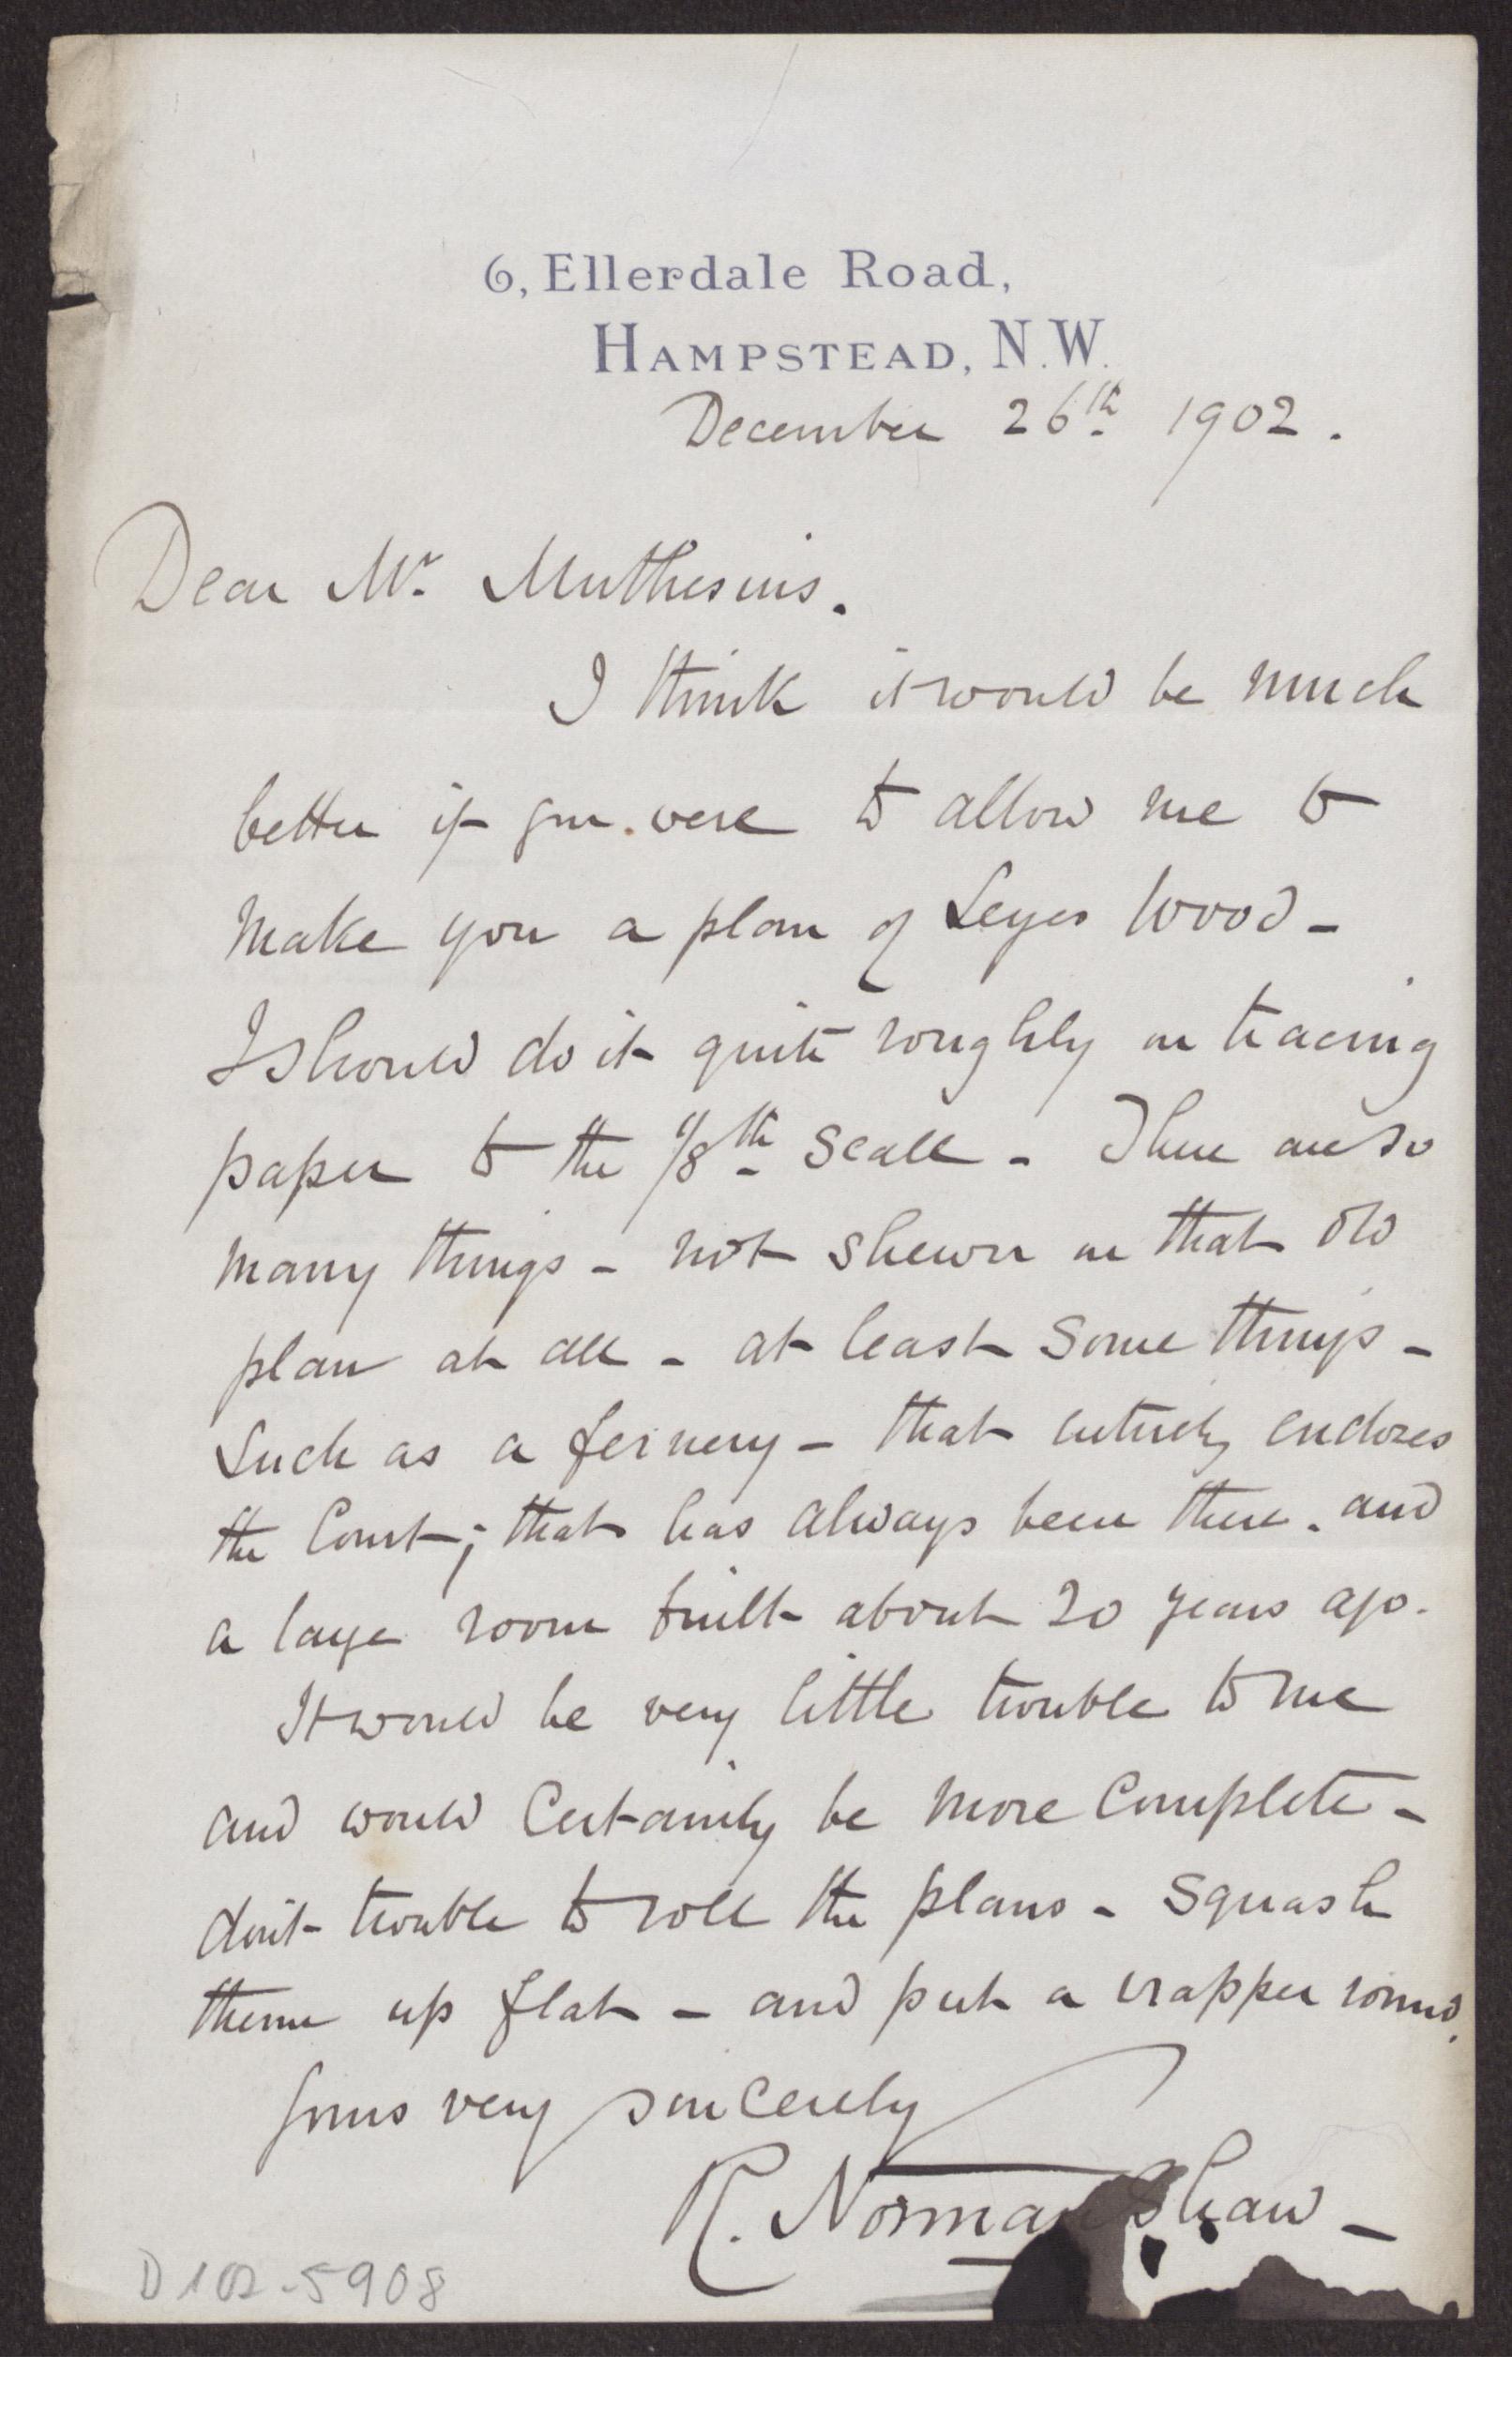 6, Ellerdale Road,
HAMPSTEAD, N.W.
December 26th 1902.
Dear Mr. Muthesius.
I think it would be much
better if you were to allow me to
make you a plan of Leyes Wood -
I should do it quite roughly on tracing
paper to the 1/8th scale - There are so
many things - not shewn on that old
plan at all - at least some things -
such as a fernery - that entirely encloses
the Court; that has always been there. and
a large room built about 20 years ago.
It would be very little trouble to me
and would certainly be more complete -
don't trouble to roll the plans - squash
them up flat - and put a wrapper round.
Yours very sincerely
R. Norman Shaw -
D 102-5908